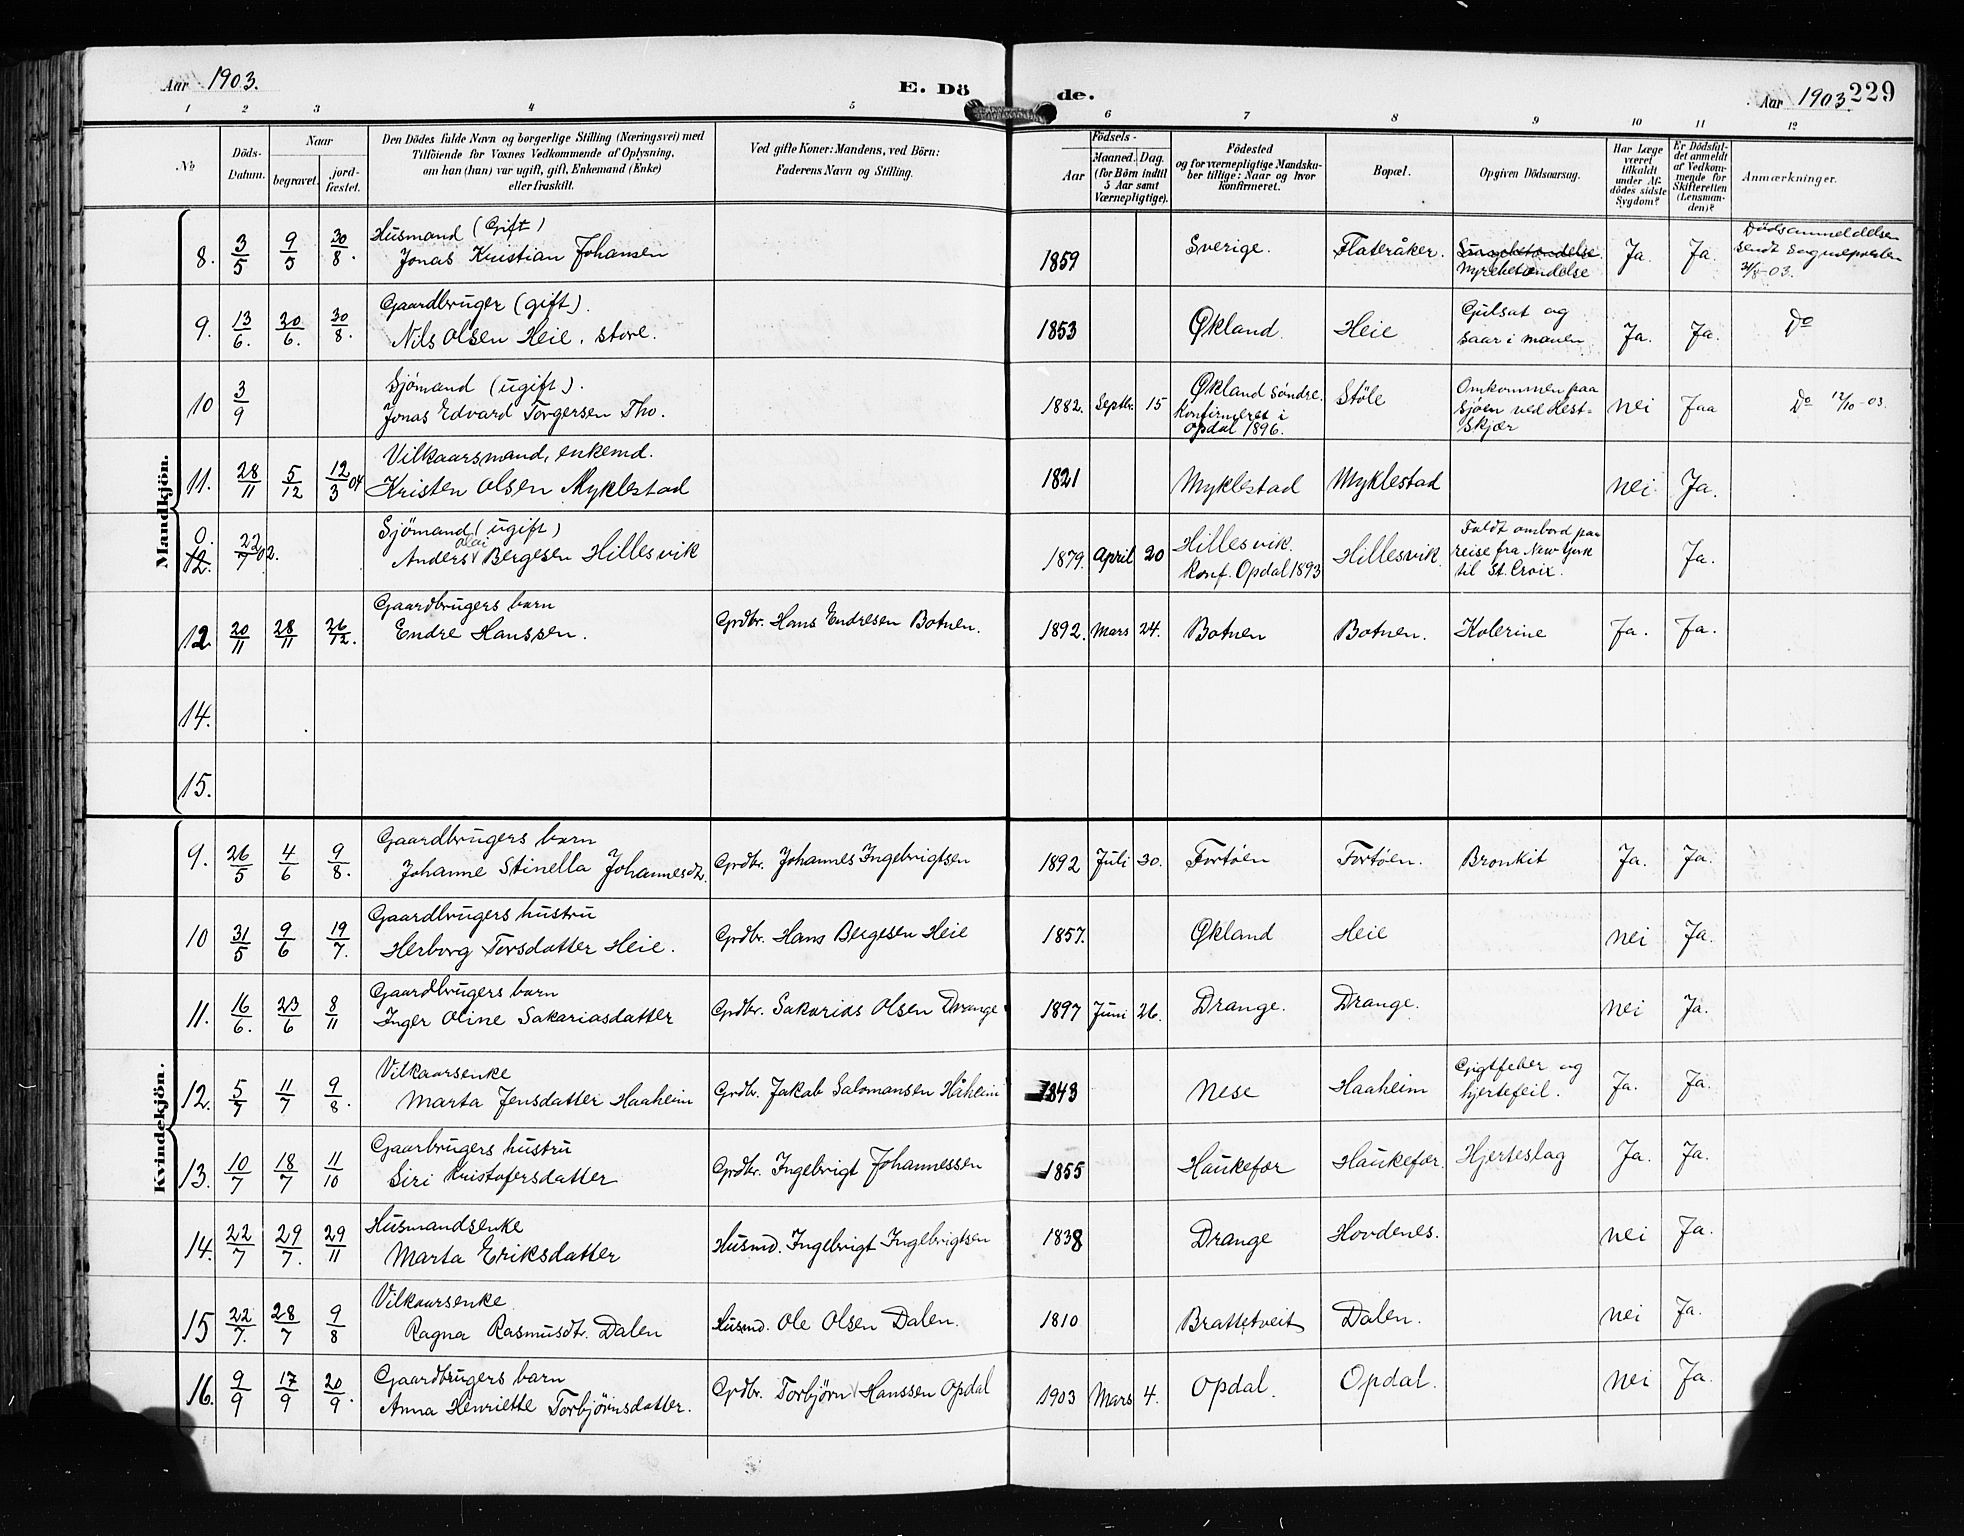 Aar 1903.
E. Döde.
Aar 1903. 229
1 2 3 4 5 6 7 8 9 10 11 12
No
Döds-Datum.
Naar
begravet.
jord-fæstet.
Den Dödes fulde Navn og borgerlige Stilling (Næringsvei) med
Tilföiende for Voxnes Vedkommende af Oplysning,
om han (hun) var ugift, gift, Enkemand (Enke)
eller fraskilt.
Ved gifte Koner: Mandens, ved Börn:
Faderens Navn og Stilling.
Födsels-
Aar
Maaned. Dag.
(for Börn indtil
5 Aar samt
Værnepligtige).
Födested
og for værnepligtige Mandska-
ber tillige: Naar og hvor
konfirmeret.
Bopæl.
Opgiven Dödsaarsag.
Har Læge
været
tilkaldt
under Af-
dödes sidste
Sygdom?
Er Dödsfal-
det anmeldt
af Vedkom-
mende for
Skifteretten
(Lensman-
den)?
Anmærkninger.
Mandkjön.
8. 3/5 9/5 30/8. Husmand (Gift)
Jonas Kristian Johansen 1859 Sverige. Flateråker. Nyrebetændelse Ja. Ja. Dödsanmeldelsen
sendt Sognepresten
31/8-03.
9. 13/6. 20/6. 30/8. Gaardbruger (gift).
Nils Olsen Heie, store. 1853 Økland. Heie Gulsot og
saar i maven Ja. Ja. Do
10 3/9 Sjömand (ugift).
Jonas Edvard Torgersen Tho. 1882. Septbr. 15 Økland söndre.
Konfirmeret i
Opdal 1896. Stöle Omkommen paa
Sjöen ved Hest-
skjær nei Jaa Do 12/10-03.
11. 28/11 5/12 12/3 04 Vilkaarsmand, enkemd.
Kristen Olsen Myklestad 1821 Myklestad Myklestad nei. Ja.
0.
12. 22/7 02. Sjömand (ugift)
Anders Olai Bergesen Hillesvik 1879. April 20 Hillesvik.
Konf. Opdal 1893 Hillesvik. Faldt ombord paa
reise fra New York
til St. Croix. Ja.
12 20/11 28/11 26/12. Gaardbrugers barn
Endre Hanssen. Grdbr. Hans Endresen Botnen. 1892. Mars 24. Botnen Botnen. Kolerine Ja. Ja.
14.
15.
Kvindekjön.
9. 26/5 4/6 9/8. Gaardbrugers barn
Johanne Stinella Johannesdtr. Grdbr. Johannes Ingebrigtsen 1892 Juli 30. Fortöen Fortöen. Bronkit Ja. Ja.
10 31/5 9/6 19/7. Gaardbrugers hustru
Herborg Torsdatter Heie. Grdbr. Hans Bergesen Heie 1857. Økland Heie nei Ja.
11. 16/6. 23/6 8/11 Gaardbrugers barn
Inger Oline Sakariasdatter Grdbr. Sakarias Olsen Drange 1897 Juni 26. Drange. Drange. nei Ja.
12. 5/7 11/7 9/8. Vilkaarsenke
Marta Jensdatter Haaheim Grdbr. Jakob Salomonsen Håheim 1843 Nese Haaheim Gigtfeber og
hjertefeil. Ja. Ja.
13. 10/7 18/7 11/10 Gaarbrugers hustru
Siri Kristofersdatter Grdbr. Ingebrigt Johannessen 1855 Haukefær Haukefær. Hjerteslag Ja. Ja.
14. 22/7 29/7. 29/11 Husmandsenke
Marta Eriksdatter Husmd. Ingebrigt Ingebrigtsen 1838 Drange Hovdenes. nei Ja.
15 22/7. 28/7 9/8 Vilkaarsenke
Ragna Rasmusdtr. Dalen Husmd. Ole Olsen Dalen. 1810 Brattetveit Dalen. nei Ja.
16. 9/9 17/9 20/9. Gaardbrugers barn
Anna Henriette Torbjörnsdatter. Grdbr. Torbjörn Hanssen Opdal 1903 Mars 4. Opdal. Opdal. nei Ja.